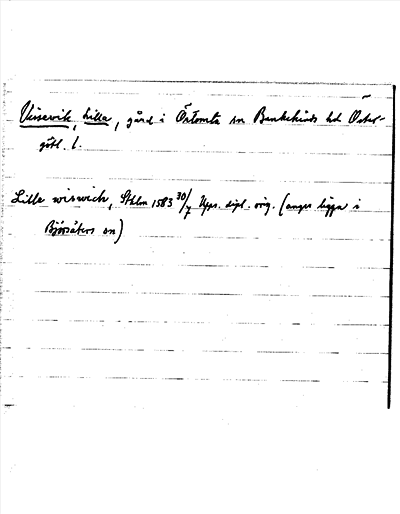 Visevik, Lilla, gård i Örtomta sn Bankekinds hd Öster-
götl. l.
Lille wiswich, Sthlm 1583 30/7 Upps. dipl. orig. (anges ligga i
Björsäters sn)